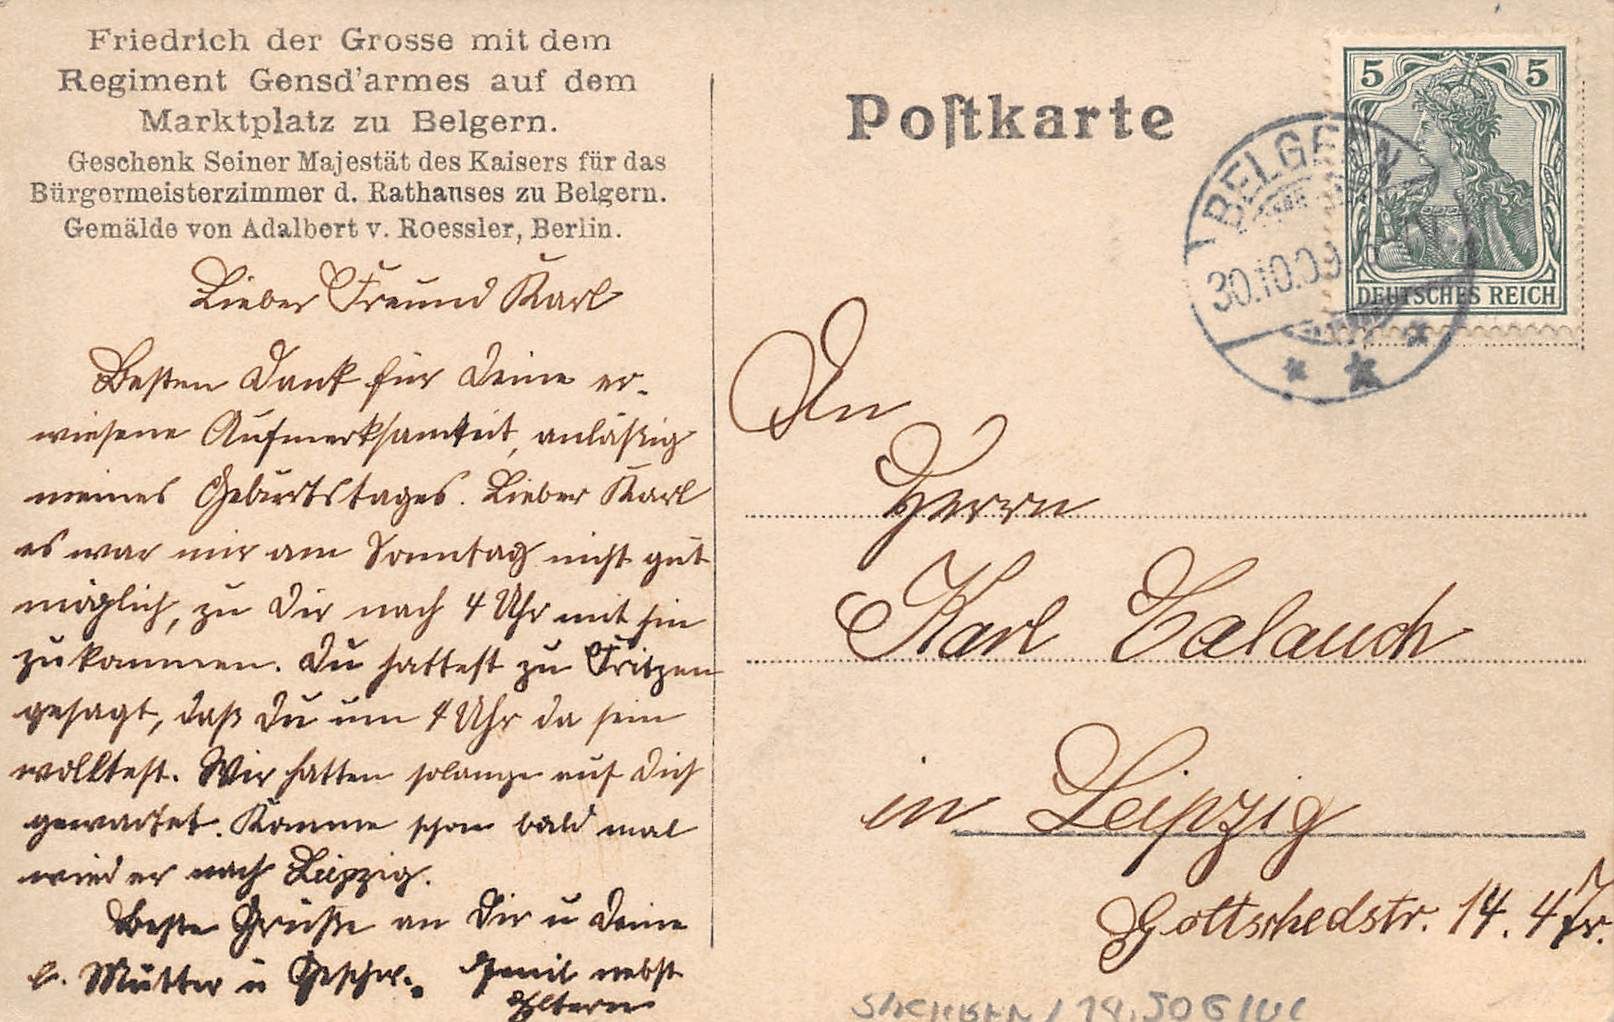 Friedrich der Grosse mit dem
Regiment Gensd'armes auf dem
Marktplatz zu Belgern.
Geschenk Seiner Majestät des Kaisers für das
Bürgermeisterzimmer d. Rathauses zu Belgern.
Gemälde von Adalbert v. Roessler, Berlin.
Lieber Freund Karl
Besten Dank für Deine er-
wiesene Aufmerksamkeit, anläßig
meines Geburtstages. Lieber Karl
es war mir am Sonntag nicht gut
möglich, zu Dir nach 4 Uhr mit hin
zu kommen. Du hattest zu Fritzen
gesagt, daß Du um 4 Uhr da sein
wolltest. Wir hatten solange auf Dich
gewartet. Komme schon bald mal
wieder nach Leipzig.
Beste Grüße an Dir u Deine
l. Mutter u Geschw. Emil nebst
Eltern
Postkarte
5 5
DEUTSCHES REICH
BELGERN
30.10.09
An
Herrn
Karl Calauch
in Leipzig
Gottschedstr. 14. 4 Tr.
SACHSEN /